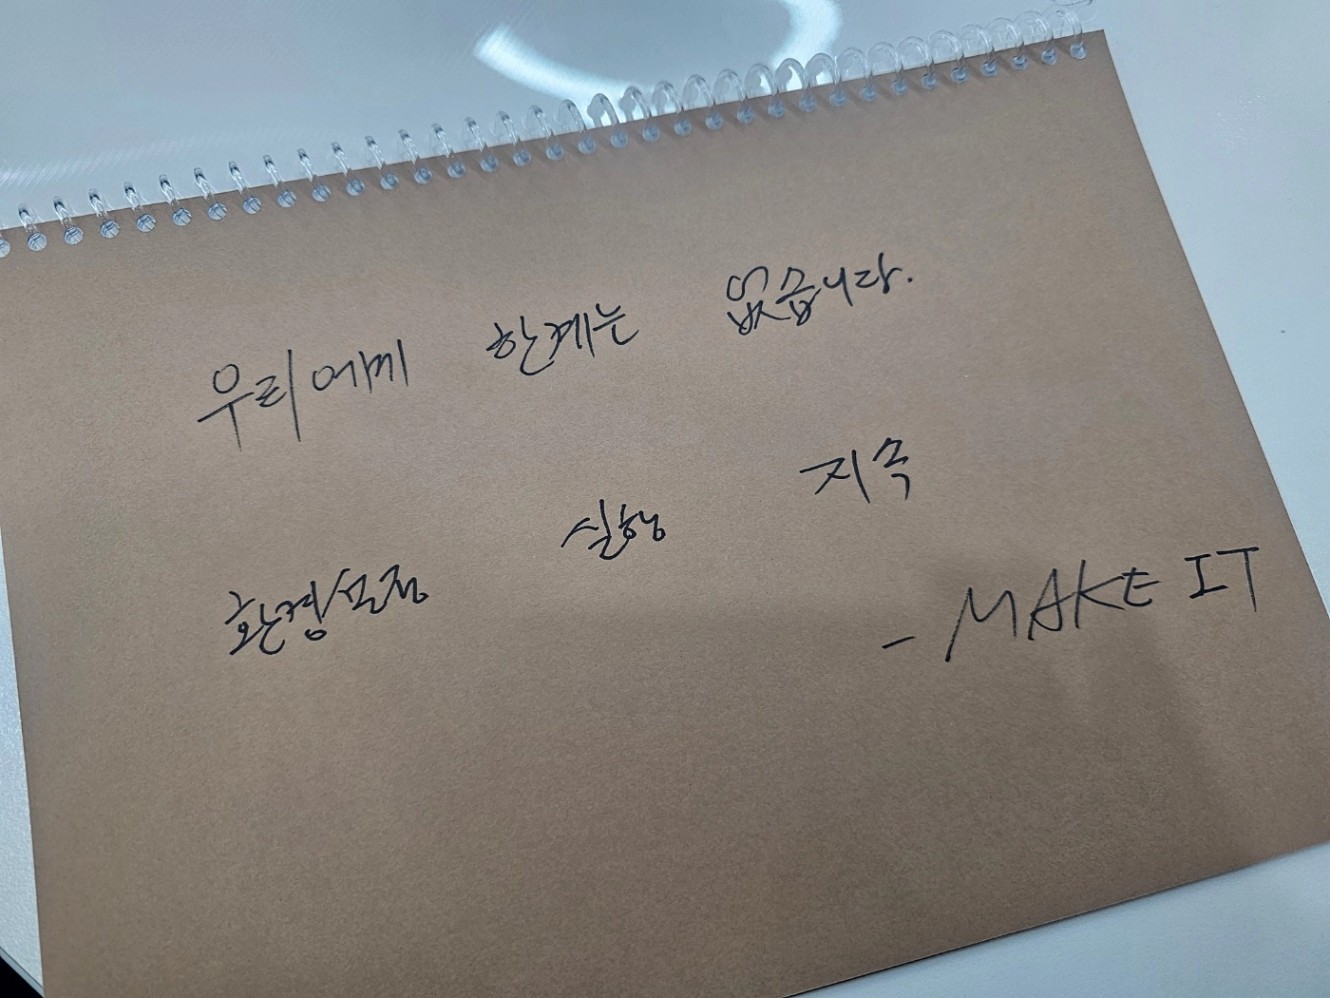 우리에게 한계는 없습니다.
환경설정 실행 지속
- MAKE IT